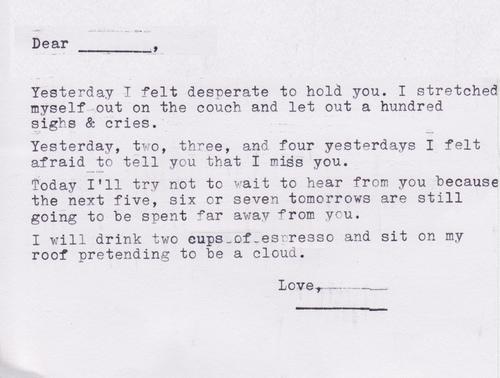 Dear ________,
Yesterday I felt desperate to hold you. I stretched
myself out on the couch and let out a hundred
sighs & cries.
Yesterday, two, three, and four yesterdays I felt
afraid to tell you that I miss you.
Today I'll try not to wait to hear from you because
the next five, six or seven tomorrows are still
going to be spent far away from you.
I will drink two cups of espresso and sit on my
roof pretending to be a cloud.
Love,________
________